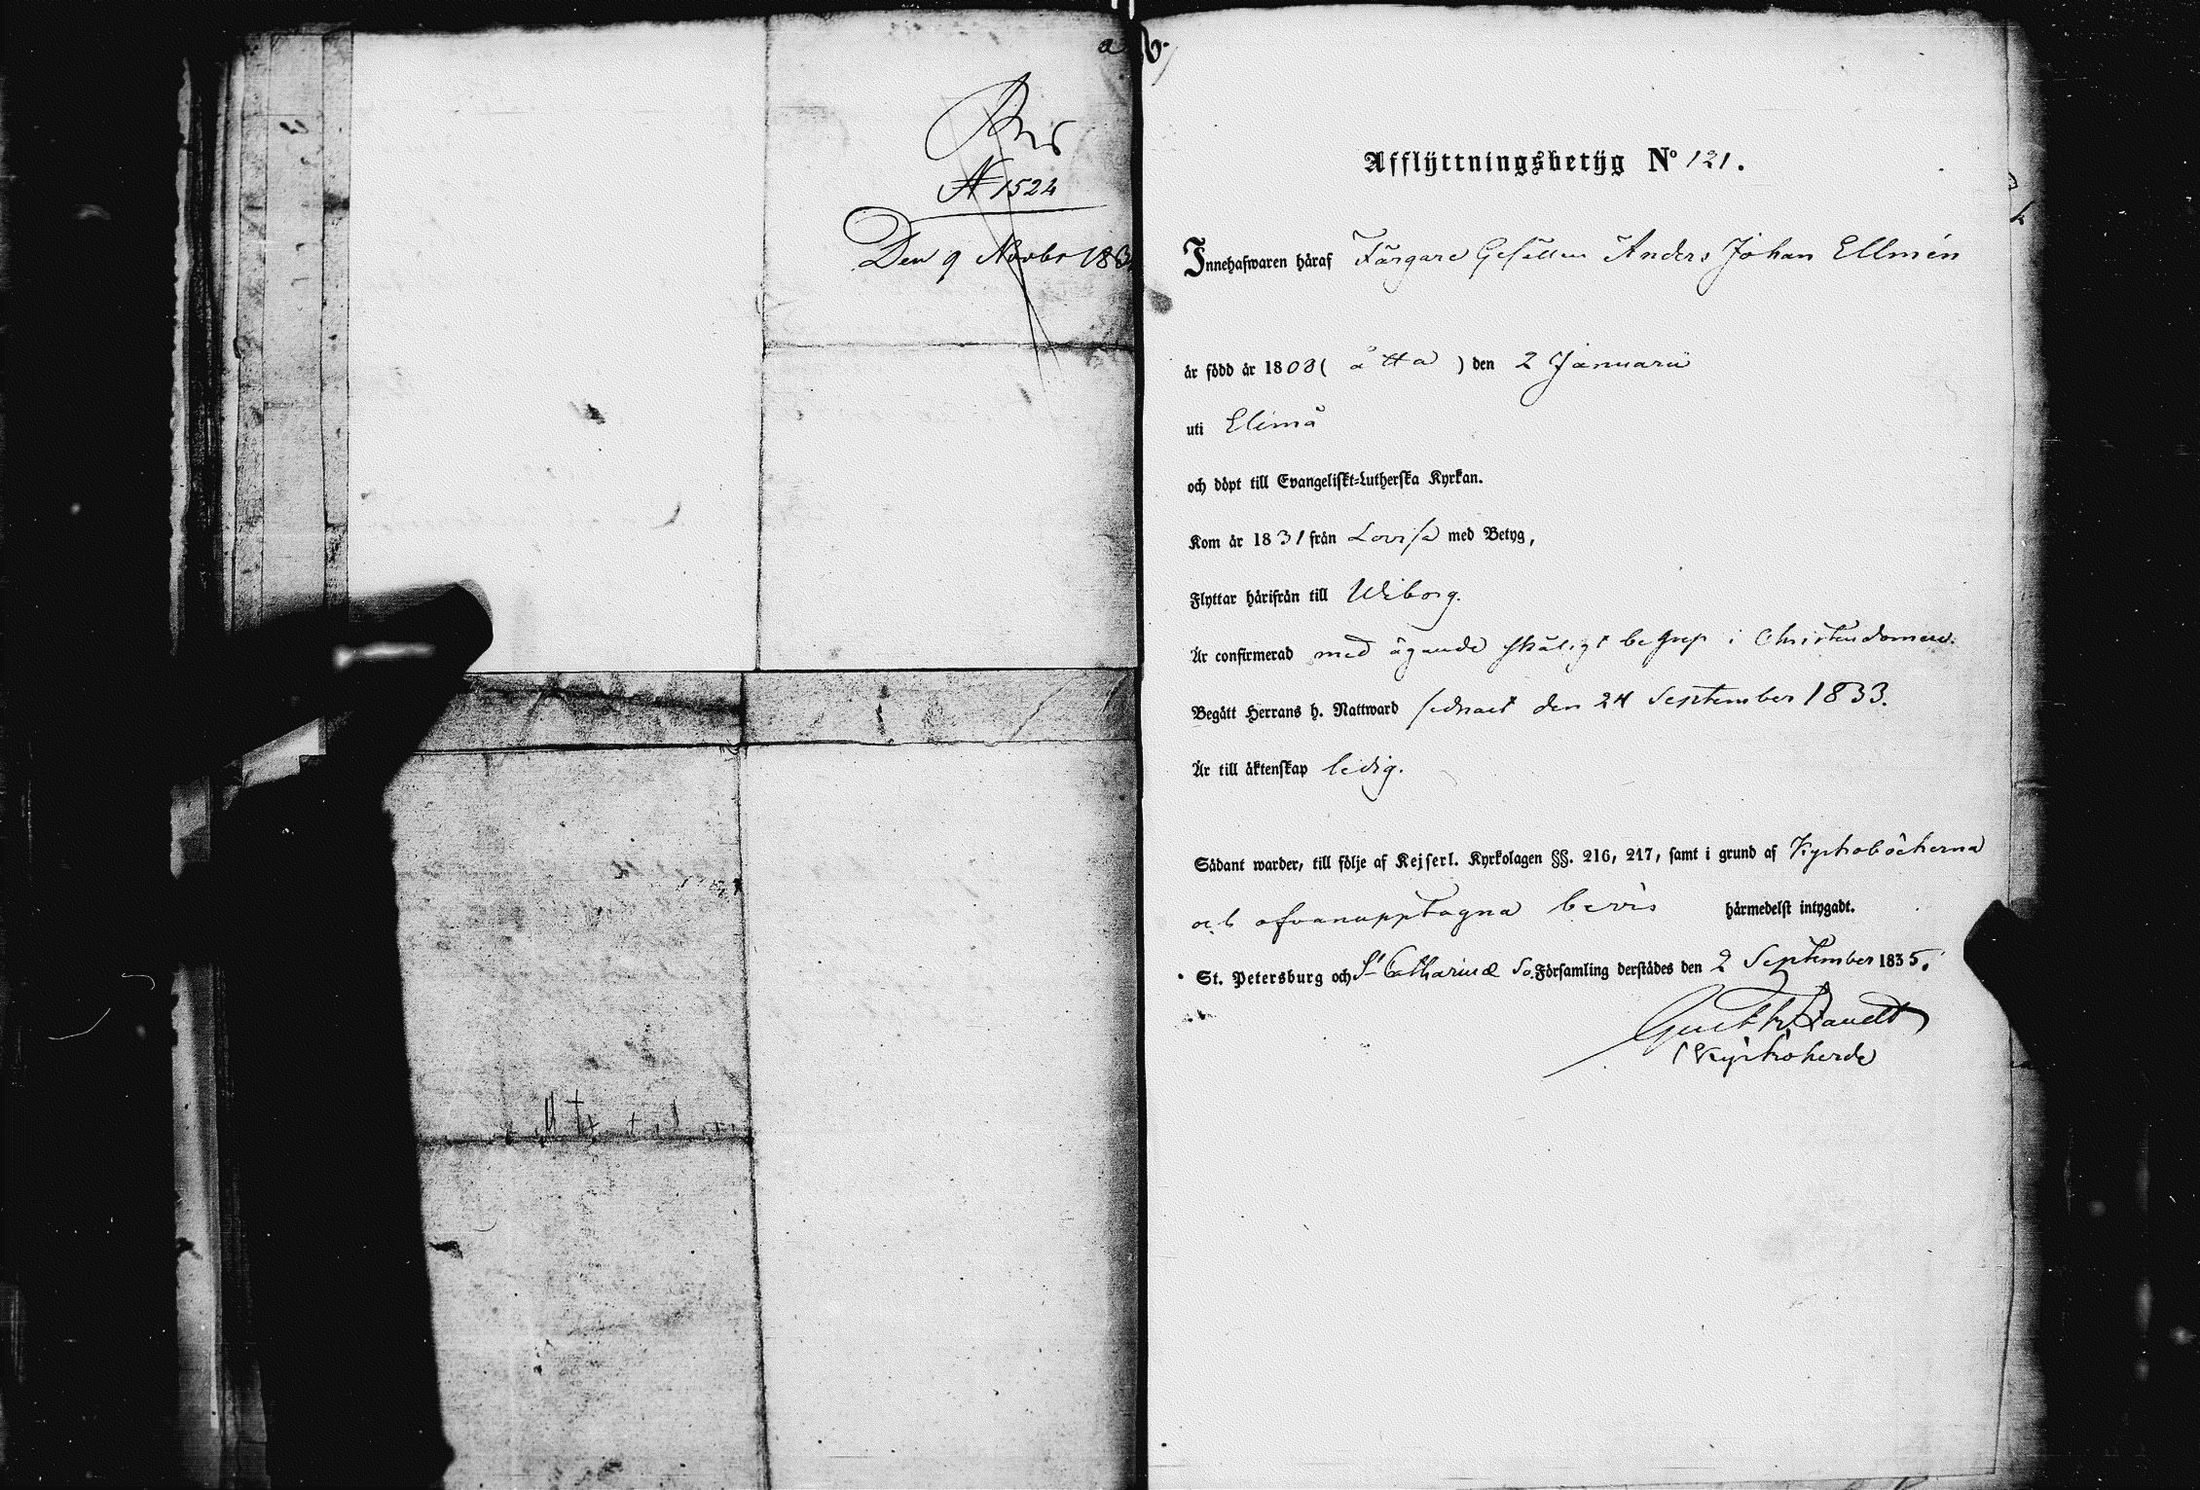 a
N 1524
Den 9 Novbr 183
Afflÿttningsbetÿg No 121.
Innehafwaren häraf Färgare Gesällen Anders Johan Ellmén
är född år 1808 ( åtta ) den 2 Januarii
uti Elimä
och döpt till Evangeliskt-Lutherska Kyrkan.
Kom år 1831 från Lovisa med Betyg,
Flyttar härifrån till Wiborg.
Är confirmerad med ägande skäligt begrep i Christendomen.
Begått Herrans h. Nattward sednast den 24 September 1833.
Är till äktenskap ledig.
Sådant warder, till följe af Kejserl. Kyrkolagen §§. 216, 217, samt i grund af Kyrkoböckerna
och ofvanupptagna bevis härmedelst intygadt.
St. Petersburg och St Catharinæ So. Församling derstädes den 2 September 1835.
Kyrkoherde